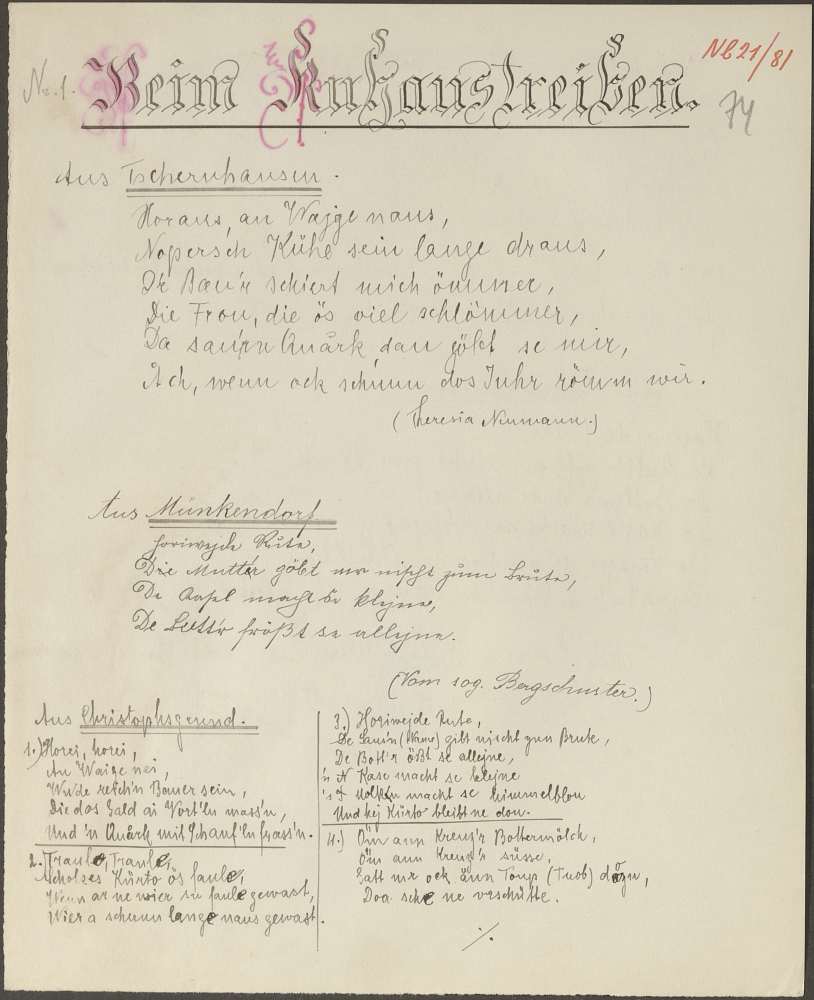 Nr. 1.
Beim Kuhaustreiben.
NB 21/81
74
Aus Tschernhausen.
Horaus, an Wajge naus,
Nopersch Kühe sein lange draus,
D'r Bau'r schiert mich ömmer,
Die Frou, die ös viel schlömmer,
Da sau'rn Quårk, dan göbt se mir,
Ach, wenn ock schunn dos Juhr römm wir.
(Theresia Neumann.)
Aus Münkendorf
Horiwejde Rute,
Die Mutt'r göbt mr nischt zum Brute,
De Apfel macht se klejne,
De Butt'r frößt se allejne.
(Vom sog. Bergschuster.)
Aus Christophsgrund.
1.) Horei, horei,
An Waige nei,
Wude reich'n Bauer sein,
Die dos Gald ai Vört'ln mass'n,
Und 'n Quårk mit Schauf'ln frass'n.
2. Fraule, Fraule,
Kürto ös faule,
Wenn ar ne wier su faule gewast,
Wier a schunn lange naus gewast.
3.) Horiwejde Rute,
De (Name) gibt nischt zun Brute,
De Bott'r ößt se allejne,
'n Kase macht se klejne
macht se himmelblou
Und kej Kürto bleibt ne dou.
4.) Öm ann Kreuz'r Bottermölch,
Öm ann Kreuz'r süsse,
Satt mr ock änn Tonp (Toob) dozu,
Doa sche ne verschütte.
./.